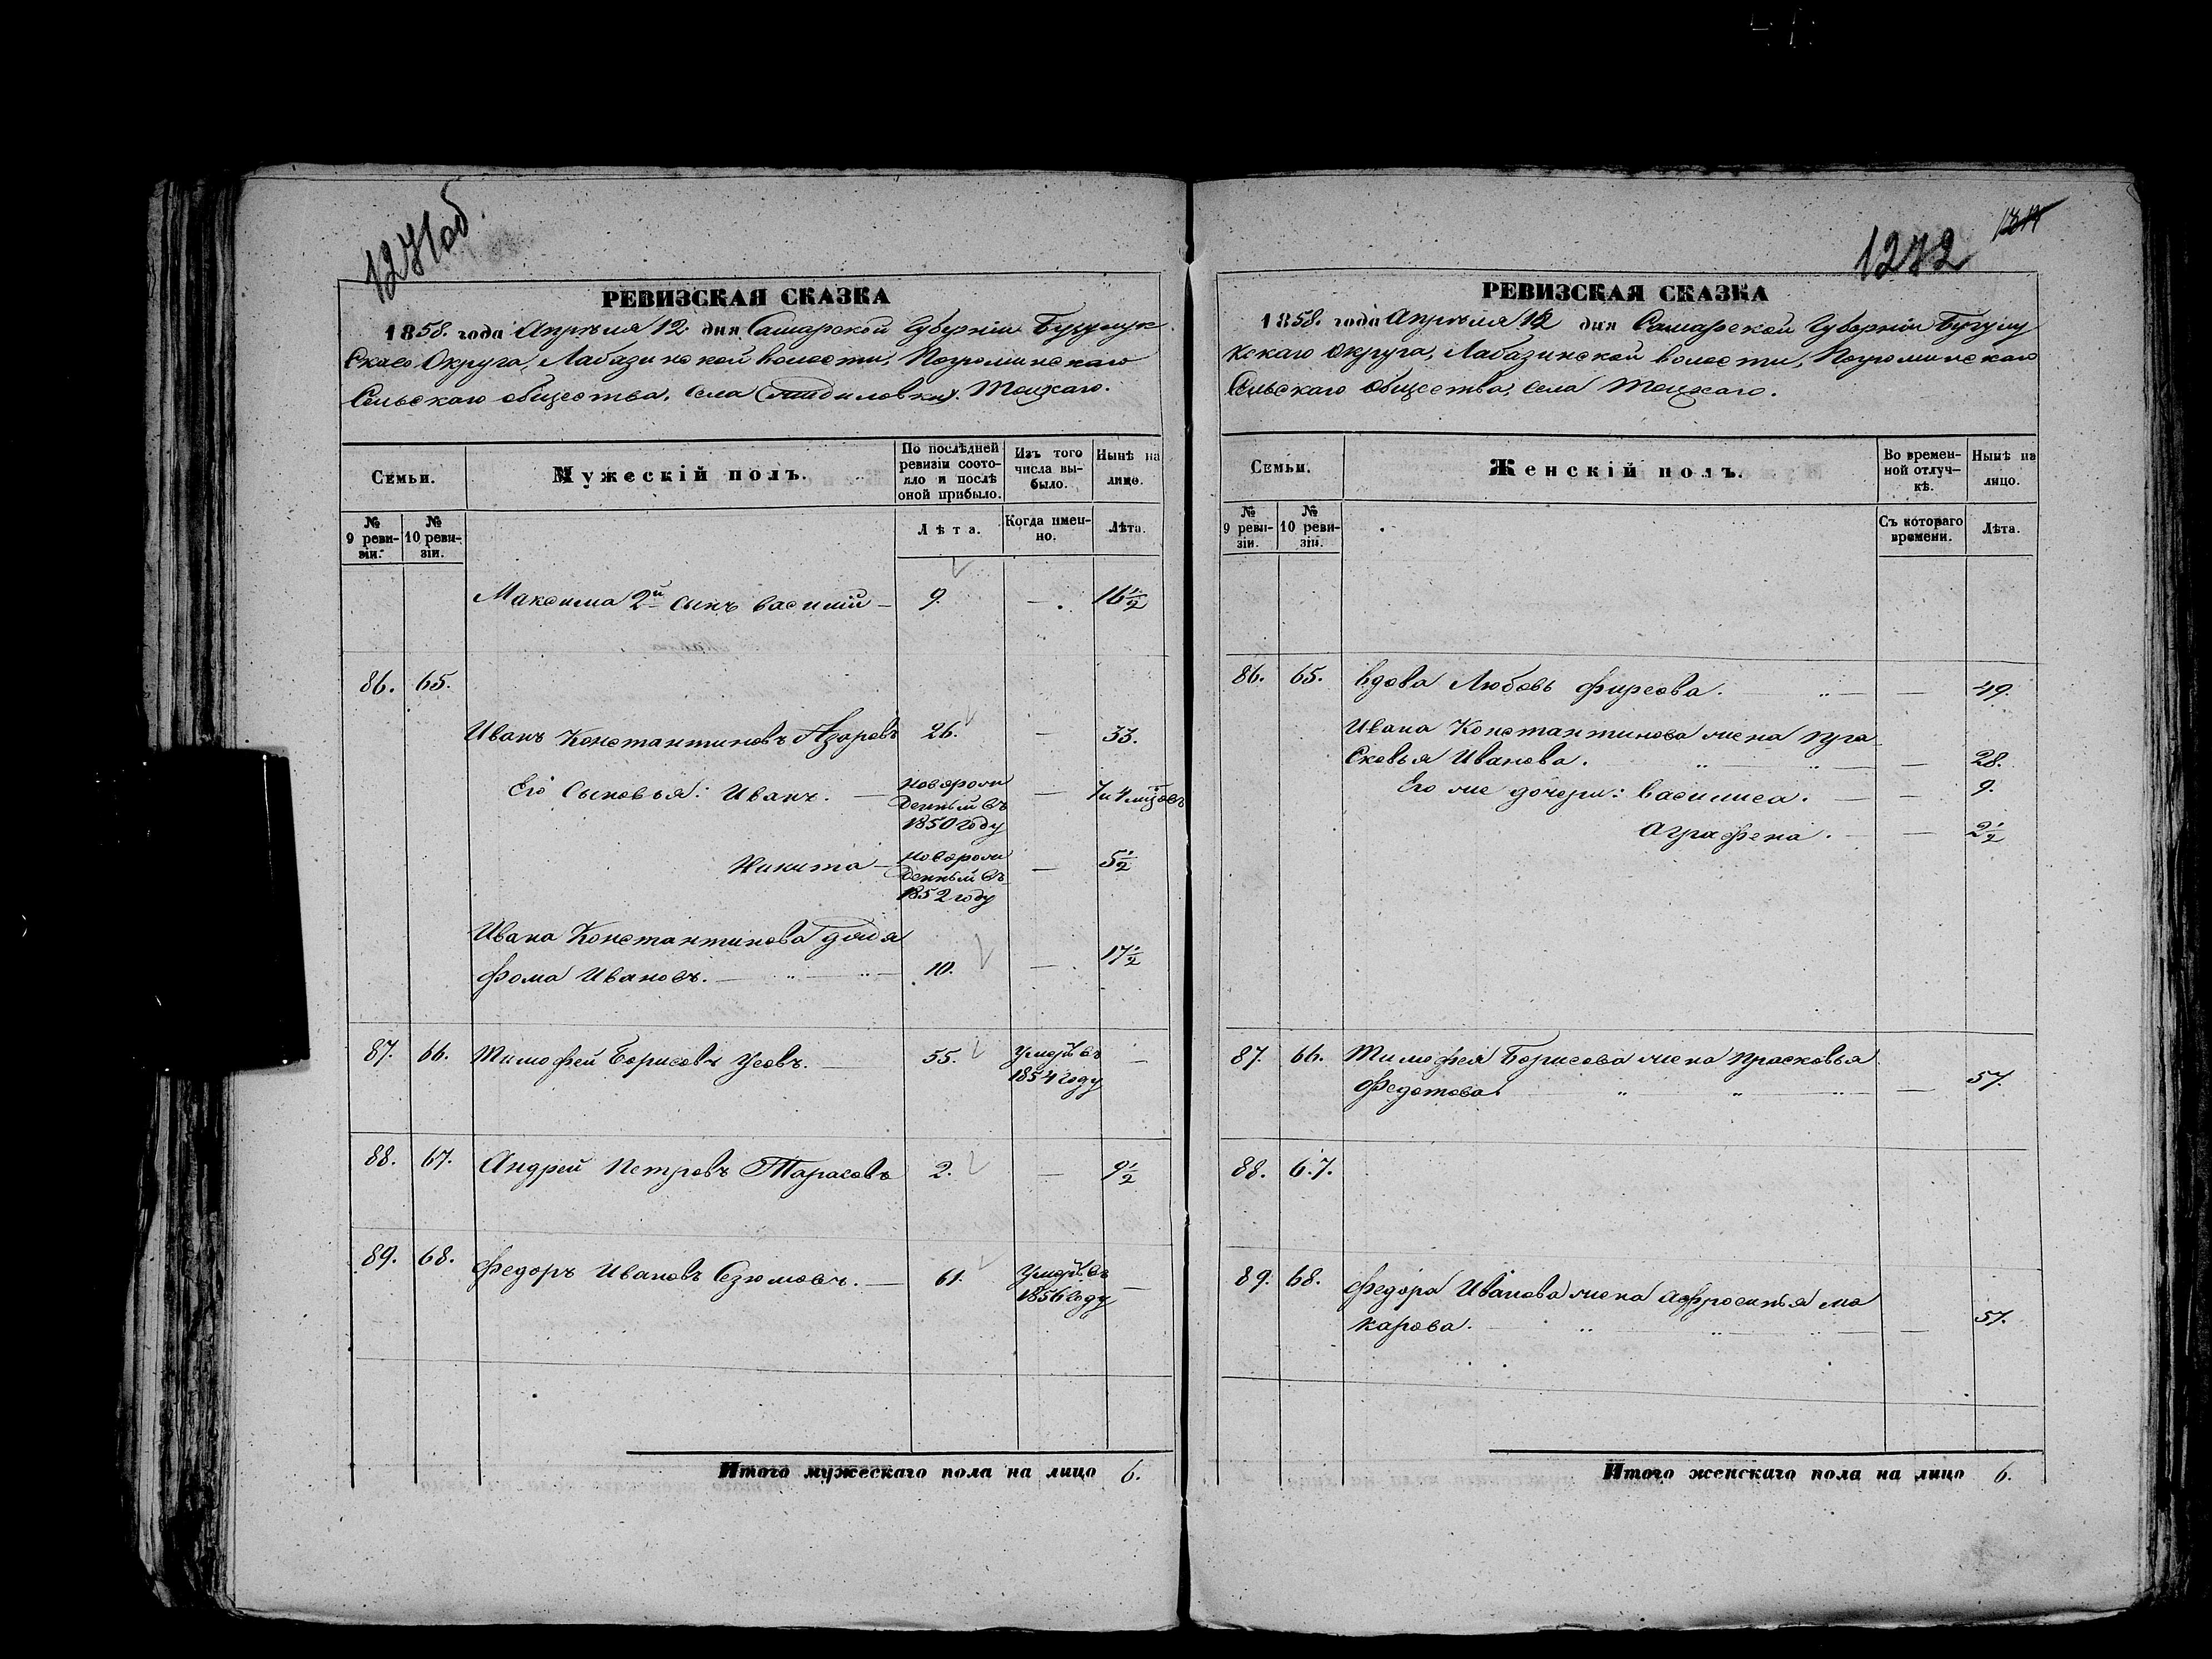 1271об.
РЕВИЗСКАЯ СКАЗКА
1858. года Апрѣля 12 дня Самарской Губерніи Бузулук
скаго Округа, Лабазинской волости, Погроминскаго
Сельскаго общества, села Тоцкаго.
Семьи.
Мужескій полъ.
По послѣдней
ревизіи состо-
яло и послѣ
оной прибыло.
Изъ того
числа вы-
было.
Нынѣ на
лицо.
№
9 реви-
зіи.
№
10 реви-
зіи.
Лѣта.
Когда имен-
но.
Лѣта.
Максима 2й сынъ Василій — 9. — 16½
86. 65.
Иванъ Константиновъ Азаровъ 26. — 33.
Его Сыновья: Иванъ. — новорож
денный въ
1850 году
— 7 и 4 мѣз
Никита — новорож
денный въ
1852 году
— 5½
Ивана Константинова дядя
Фома Ивановъ. — 10. — 17½
87. 66. Тимофей Борисовъ Усовъ. — 55. Умеръ въ
1854 году —
88. 67. Андрей Петровъ Тарасовъ 2. — 9½
89. 68. Федоръ Ивановъ Сезюмовъ. — 61. Умеръ въ
1856 году —
Итого мужескаго пола на лицо 6.
1272
РЕВИЗСКАЯ СКАЗКА
1858. года Апрѣля 12 дня Самарской Губерніи Бузулу
кскаго Округа, Лабазинской волости, Погроминскаго
Сельскаго общества, села Тоцкаго.
Семьи.
Женскій полъ.
Во времен-
ной отлуч-
кѣ.
Нынѣ на
лицо.
№
9 реви-
зіи.
№
10 реви-
зіи.
Съ котораго
времени.
Лѣта.
86. 65. Вдова Любовь Фирсова. — 49.
Ивана Константинова жена Пра
сковья Иванова. — 28.
Его же дочери: Василиса. — 9.
Аграфена. — 2½
87. 66. Тимофея Борисова жена Прасковья
Федотова. — 57.
88. 67.
89. 68. Федора Иванова жена Афросинья Ма
карова. — 57.
Итого женскаго пола на лицо 6.